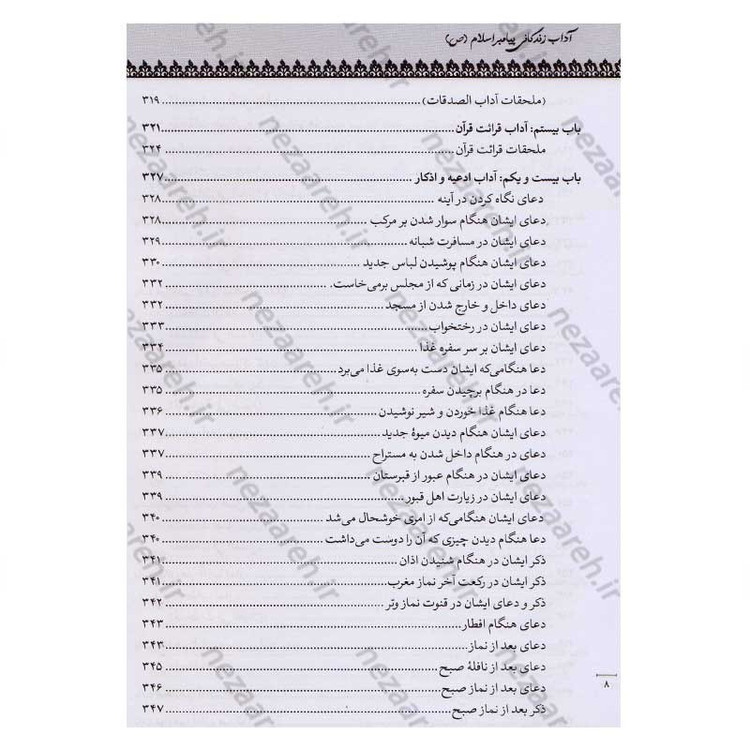 آداب زندگانی پیامبر اسلام (ص)
(ملحقات آداب الصدقات) ........ ۳۱۹
باب بیستم: آداب قرائت قرآن ........ ۳۲۱
ملحقات قرائت قرآن ........ ۳۲۴
باب بیست و یکم: آداب ادعیه و اذکار ........ ۳۲۷
دعای نگاه کردن در آینه ........ ۳۲۸
دعای ایشان هنگام سوار شدن بر مرکب ........ ۳۲۸
دعای ایشان در مسافرت شبانه ........ ۳۲۹
دعای ایشان هنگام پوشیدن لباس جدید ........ ۳۳۰
دعای ایشان در زمانی که از مجلس برمی‌خاست ........ ۳۳۲
دعای داخل و خارج شدن از مسجد ........ ۳۳۲
دعای ایشان در رختخواب ........ ۳۳۳
دعای ایشان بر سر سفره غذا ........ ۳۳۴
دعا هنگامی‌که ایشان دست به‌سوی غذا می‌برد ........ ۳۳۵
دعا در هنگام برچیدن سفره ........ ۳۳۵
دعا هنگام غذا خوردن و شیر نوشیدن ........ ۳۳۶
دعای ایشان هنگام دیدن میوهٔ جدید ........ ۳۳۷
دعای در هنگام داخل شدن به مستراح ........ ۳۳۷
دعای ایشان در هنگام عبور از قبرستان ........ ۳۳۹
دعای ایشان در زیارت اهل قبور ........ ۳۳۹
دعای ایشان هنگامی‌که از امری خوشحال می‌شد ........ ۳۴۰
دعا هنگام دیدن چیزی که آن را دوست می‌داشت ........ ۳۴۰
ذکر ایشان در هنگام شنیدن اذان ........ ۳۴۱
ذکر ایشان در رکعت آخر نماز مغرب ........ ۳۴۱
ذکر و دعای ایشان در قنوت نماز وتر ........ ۳۴۲
دعای هنگام افطار ........ ۳۴۳
دعای بعد از نماز ........ ۳۴۳
دعای بعد از نافلهٔ صبح ........ ۳۴۵
دعای بعد از نماز صبح ........ ۳۴۶
ذکر بعد از نماز صبح ........ ۳۴۷
۸
nezaareh.ir